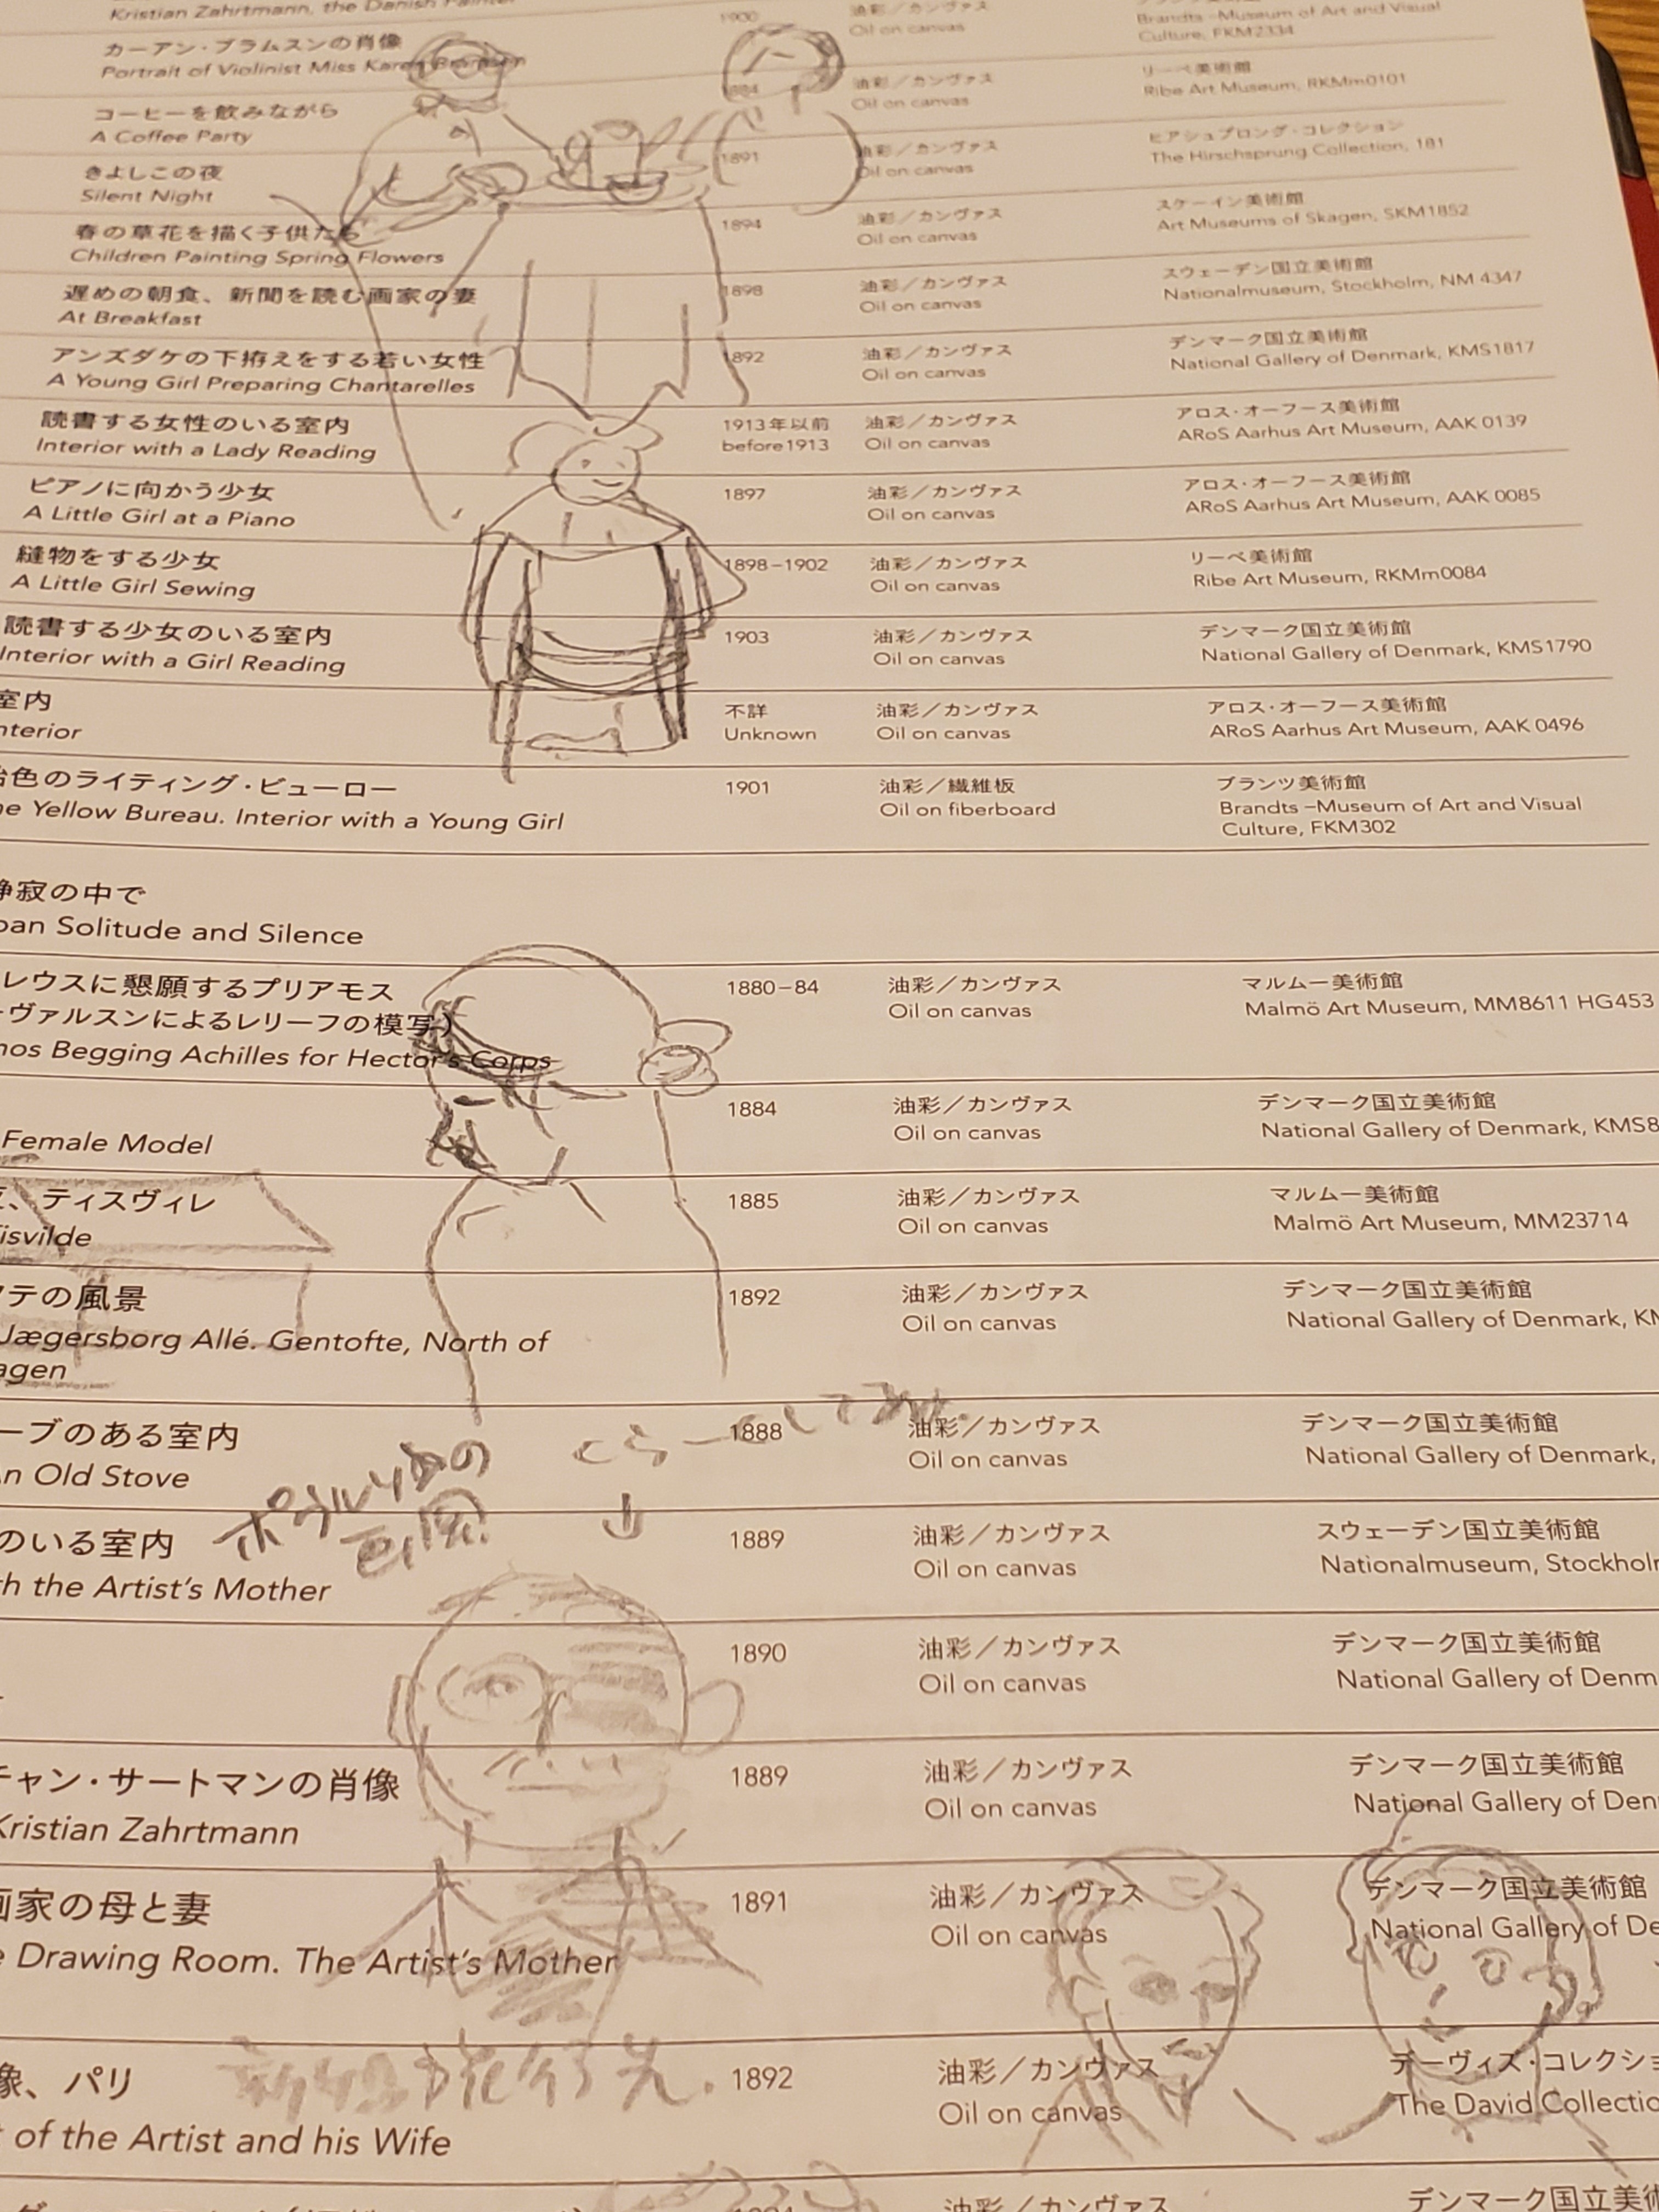 Kristian Zahrtmann, the Danish Painter
1900
Oil on canvas
Brandts –Museum of Art and Visual
Culture, FKM2334
カーアン・ブラムスンの肖像
Portrait of Violinist Miss Karen Bramsen
1884
油彩／カンヴァス
Oil on canvas
リーベ美術館
Ribe Art Museum, RKMm0101
コーヒーを飲みながら
A Coffee Party
1891
油彩／カンヴァス
Oil on canvas
ヒアシュプロング・コレクション
The Hirschsprung Collection, 181
きよしこの夜
Silent Night
1894
油彩／カンヴァス
Oil on canvas
スケーイン美術館
Art Museums of Skagen, SKM1852
春の草花を描く子供たち
Children Painting Spring Flowers
1898
油彩／カンヴァス
Oil on canvas
スウェーデン国立美術館
Nationalmuseum, Stockholm, NM 4347
遅めの朝食、新聞を読む画家の妻
At Breakfast
1892
油彩／カンヴァス
Oil on canvas
デンマーク国立美術館
National Gallery of Denmark, KMS1817
アンズダケの下拵えをする若い女性
A Young Girl Preparing Chantarelles
1913年以前
before1913
油彩／カンヴァス
Oil on canvas
アロス・オーフース美術館
ARoS Aarhus Art Museum, AAK 0139
読書する女性のいる室内
Interior with a Lady Reading
1897
油彩／カンヴァス
Oil on canvas
アロス・オーフース美術館
ARoS Aarhus Art Museum, AAK 0085
ピアノに向かう少女
A Little Girl at a Piano
1898–1902
油彩／カンヴァス
Oil on canvas
リーベ美術館
Ribe Art Museum, RKMm0084
縫物をする少女
A Little Girl Sewing
1903
油彩／カンヴァス
Oil on canvas
デンマーク国立美術館
National Gallery of Denmark, KMS1790
読書する少女のいる室内
Interior with a Girl Reading
不詳
Unknown
油彩／カンヴァス
Oil on canvas
アロス・オーフース美術館
ARoS Aarhus Art Museum, AAK 0496
室内
nterior
1901
油彩／繊維板
Oil on fiberboard
ブランツ美術館
Brandts –Museum of Art and Visual
Culture, FKM302
色のライティング・ビューロー
e Yellow Bureau. Interior with a Young Girl
静寂の中で
ban Solitude and Silence
レウスに懇願するプリアモス
ヴァルスンによるレリーフの模写）
mos Begging Achilles for Hector's Corps
1880–84
油彩／カンヴァス
Oil on canvas
マルムー美術館
Malmö Art Museum, MM8611 HG453
Female Model
1884
油彩／カンヴァス
Oil on canvas
デンマーク国立美術館
National Gallery of Denmark, KMS8
、ティスヴィレ
isvilde
1885
油彩／カンヴァス
Oil on canvas
マルムー美術館
Malmö Art Museum, MM23714
フテの風景
Jægersborg Allé. Gentofte, North of
agen
1892
油彩／カンヴァス
Oil on canvas
デンマーク国立美術館
National Gallery of Denmark, KM
ーブのある室内
n Old Stove
1888
油彩／カンヴァス
Oil on canvas
デンマーク国立美術館
National Gallery of Denmark,
のいる室内
th the Artist's Mother
1889
油彩／カンヴァス
Oil on canvas
スウェーデン国立美術館
Nationalmuseum, Stockholm
1890
油彩／カンヴァス
Oil on canvas
デンマーク国立美術館
National Gallery of Denm
チャン・サートマンの肖像
Kristian Zahrtmann
1889
油彩／カンヴァス
Oil on canvas
デンマーク国立美術館
National Gallery of Den
画家の母と妻
e Drawing Room. The Artist's Mother
1891
油彩／カンヴァス
Oil on canvas
デンマーク国立美術館
National Gallery of De
像、パリ
t of the Artist and his Wife
新婚旅行先.
1892
油彩／カンヴァス
Oil on canvas
デーヴィズ・コレクショ
The David Collectio
油彩／カンヴァス
デンマーク国立美術